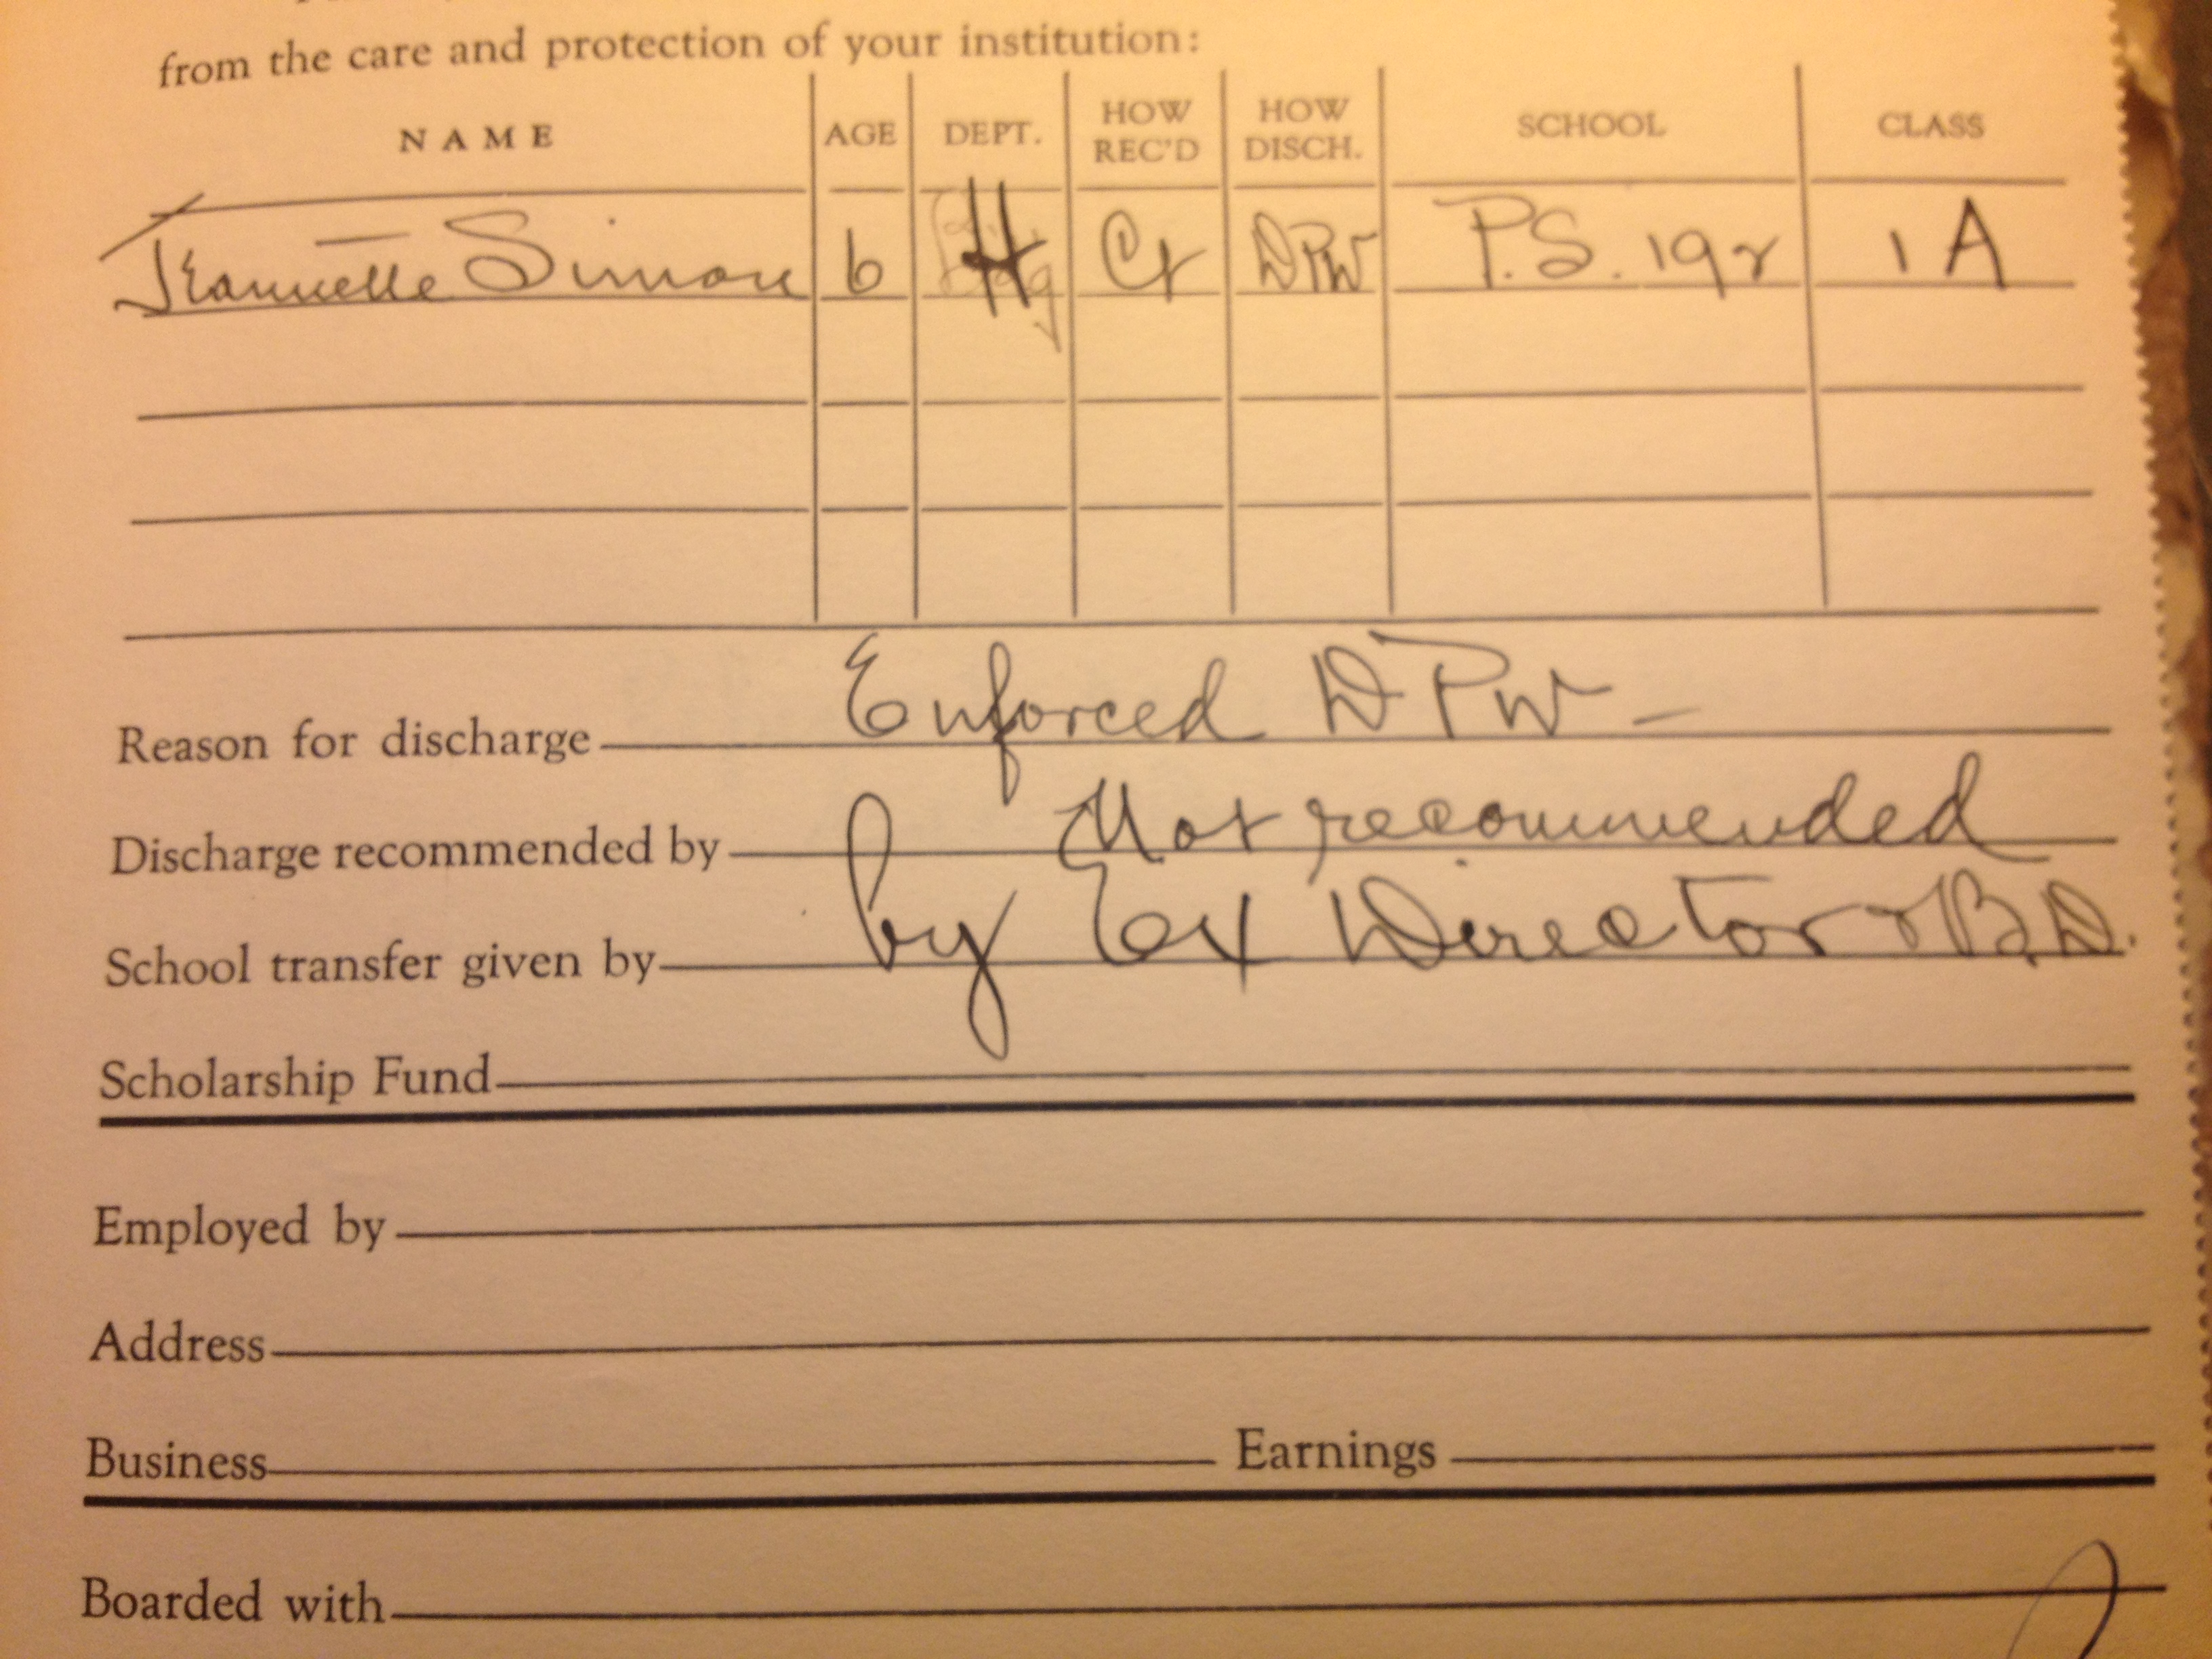 from the care and protection of your institution:
NAME AGE DEPT. HOW REC'D HOW DISCH. SCHOOL CLASS
Jeannette Simon 6 H Ct DPW P.S. 192 1A
Reason for discharge Enforced DPW –
Discharge recommended by Not recommended
School transfer given by by Ex Director & B.D.
Scholarship Fund
Employed by
Address
Business Earnings
Boarded with